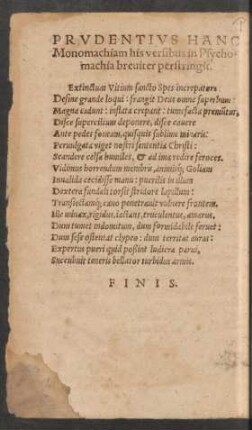 PRVDENTIVS HANC
Monomachiam his versibus in Psycho-
machia breuiter perstringit.
Extinctum Vitium sancto Spes increpat ore:
Desine grande loqui: frangit Deus omne superbum:
Magna cadunt: inflata crepant: tumefacta premuntur,
Disce supercilium deponere, disce cauere
Ante pedes foueam, quisquis sublime minaris.
Peruulgata viget nostri sententia Christi:
Scandere celsa humiles, & ad ima redire feroces.
Vidimus horrendum membris, animisq; Goliam
Inualida cecidisse manu: puerilis in illum
Dextera fundali torsit stridore lapillum:
Traiectamq; cauo penetrauit vulnere frontem.
Ille minax, rigidus, iactans, truculentus, amarus,
Dum tumet indomitum, dum formidabile feruet:
Dum sese ostentat clypeo: dum territat auras:
Expertus pueri quid possint ludicra parui,
Succubuit teneris bellator turbidus annis.
FINIS.